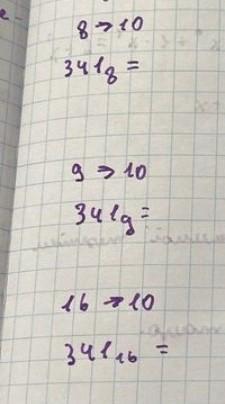 8 → 10
341₈ =
9 → 10
341₉ =
16 → 10
341₁₆ =